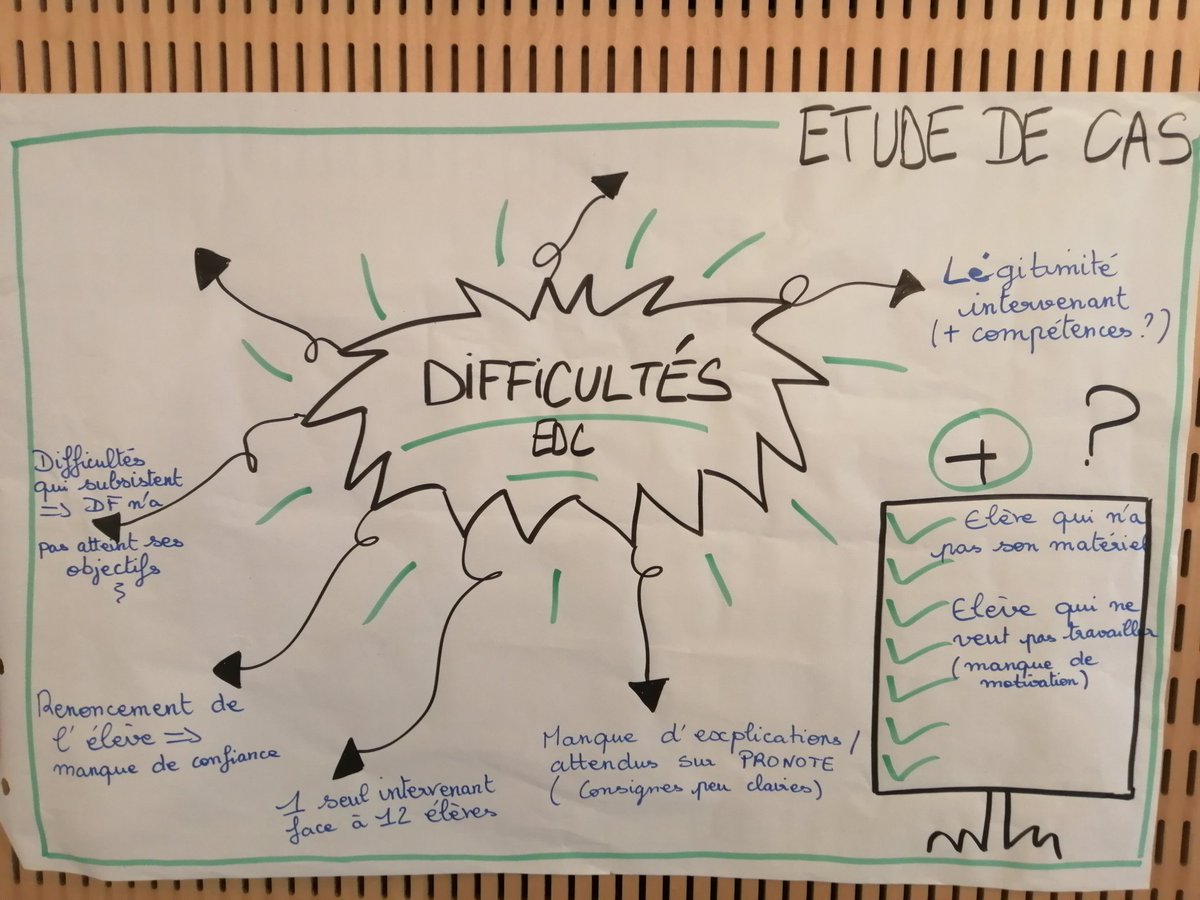 ETUDE DE CAS
DIFFICULTÉS
EDC
Légitimité
intervenant
(+ compétences ?)
Difficultés
qui subsistent
=> DF n'a
pas atteint ses
objectifs
Renoncement de
l'élève =>
manque de confiance
1 seul intervenant
face à 12 élères
Manque d'explications /
attendus sur PRONOTE
( Consignes peu claires)
+
?
Elève qui n'a
pas son matériel
Elève qui ne
veut pas travailler
(manque de
motivation)